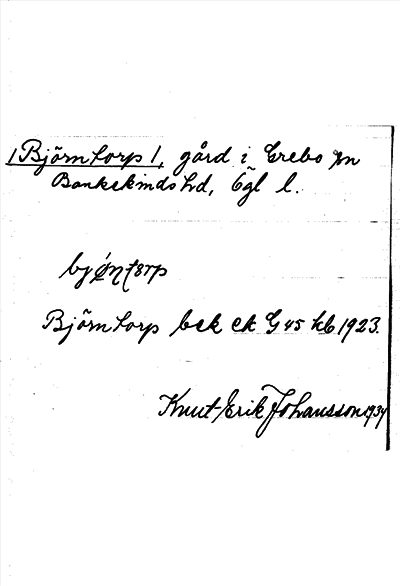 /Björntorp/, gård i Grebo sn
Bankekinds hd, Ögl l.
Björntorp bek ek G 45 kb 1923.
Knut-Erik Johansson 1934